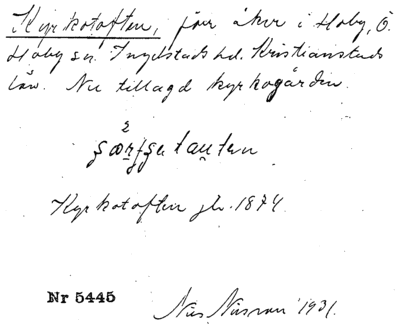 Kyrkotoften, förr åker i Hoby, Ö.
Hoby sn. Ingelstads hd. Kristianstads
län. Nu tillagd kyrkogården.
Kyrkotoften jb. 1874.
Nr 5445
Nils Nilsson 1931.